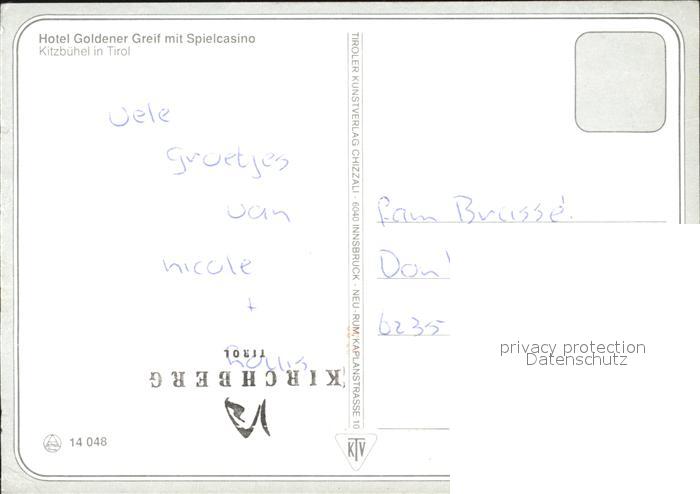 Hotel Goldener Greif mit Spielcasino
Kitzbühel in Tirol
TIROLER KUNSTVERLAG CHIZZALI · 6040 INNSBRUCK - NEU-RUM, KAPLANSTRASSE 10
vele
groetjes
van
nicole
+
fam Brassé.
6235
privacy protection
Datenschutz
TIROL
KIRCHBERG
14 048
KTV